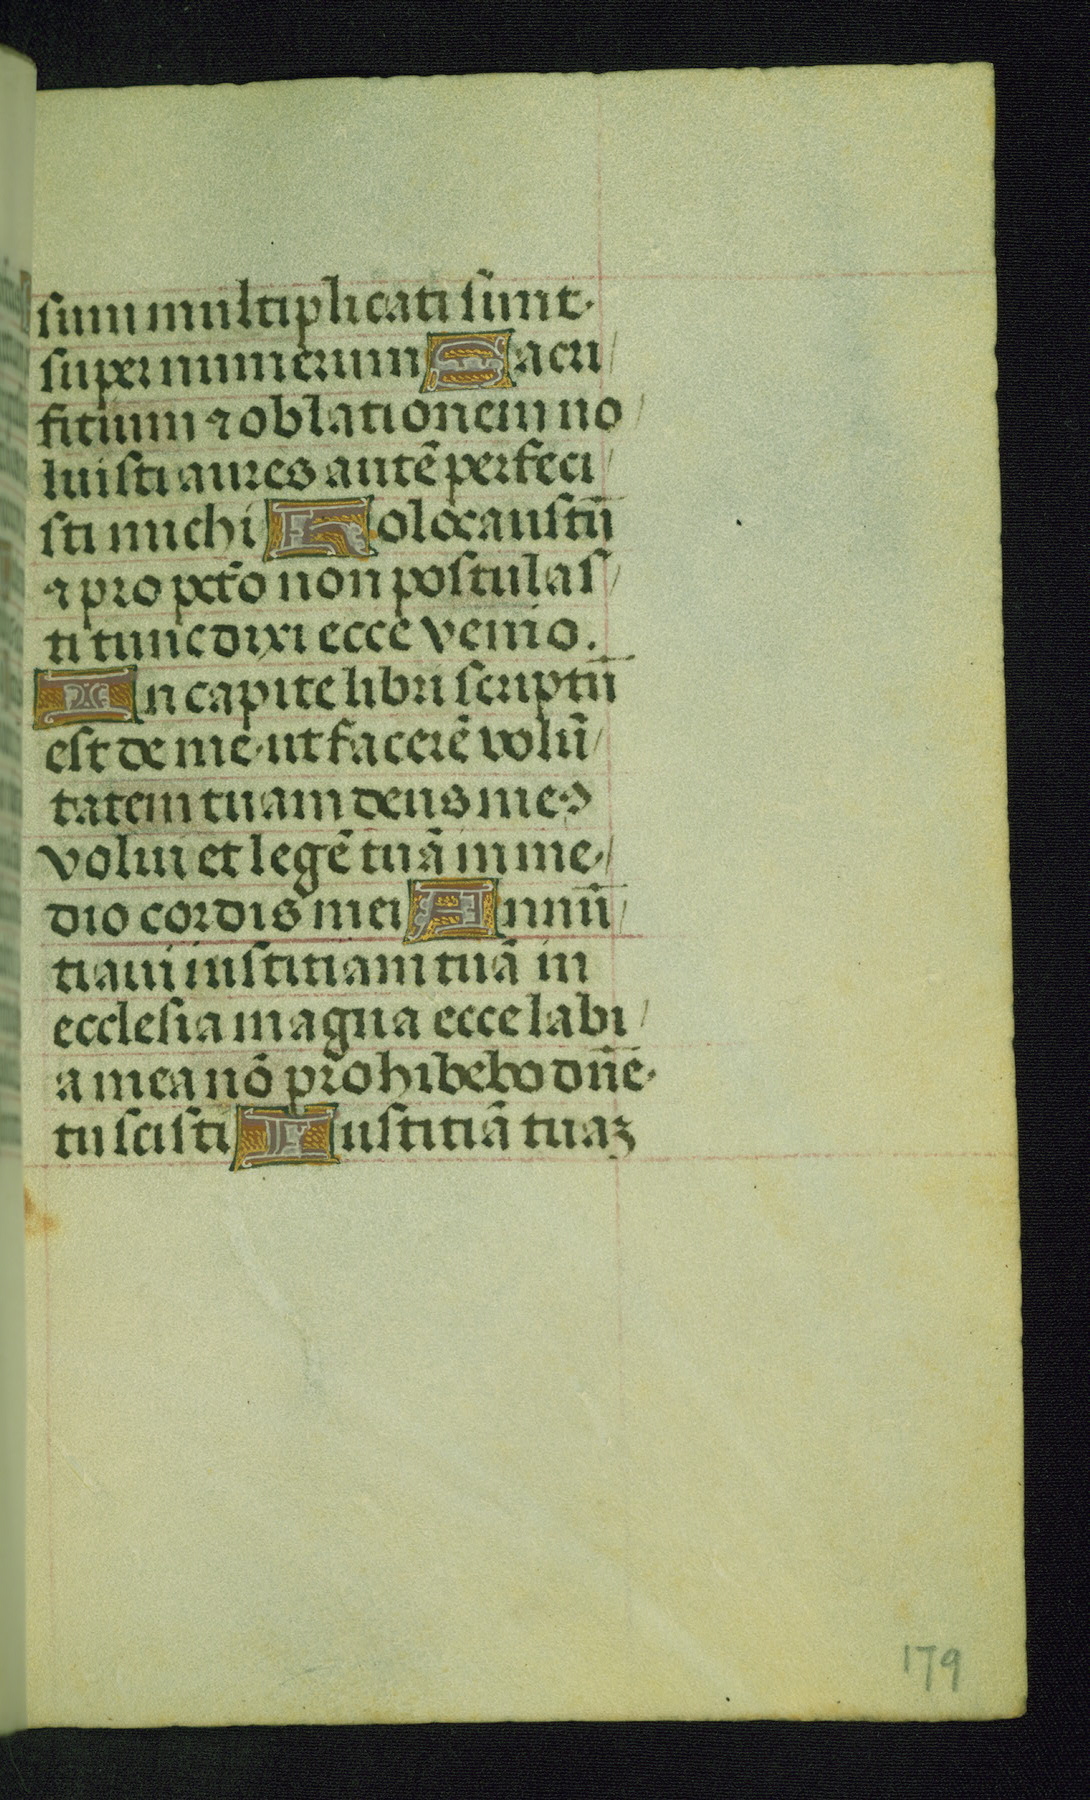 sum multiplicati sunt·
super numerum Sacri/
fitium ⁊ oblationem no/
luisti aures autē perfeci/
sti michi Holocaustū
⁊ pro pctō non postulas/
ti tunc dixi ecce venio.
In capite libri scriptū
est de me·ut facerē volū/
tatem tuam deus me9
volui et legē tuā in me·/
dio cordis mei Annū/
tiaui iustitiam tuā in
ecclesia magna ecce labi/
a mea nō prohibebo dn̄e·
tu scisti Iustitiā tuaꝫ
179